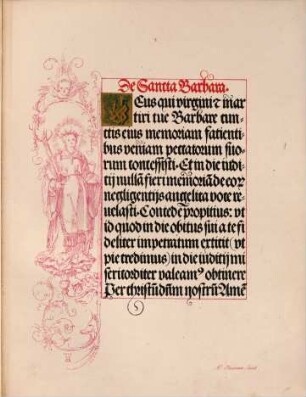 De Sancta Barbara.
DEus qui virgini et mar
tiri tue Barbare cun
ctis eius memoriam facienti
bus veniam peccatorum suo
rum concessisti. Et in die iudi
tij nullā fieri memoriā de eoꝝ
negligentijs angelica voce re
uelasti. Concede propitius: vt
id quod in die obitus sui a te fi
deliter impetratum extitit (vt
pie credimus) in die iuditij mi
sericorditer valeamꝰ obtinere
Per christū dūm nostrū Amē